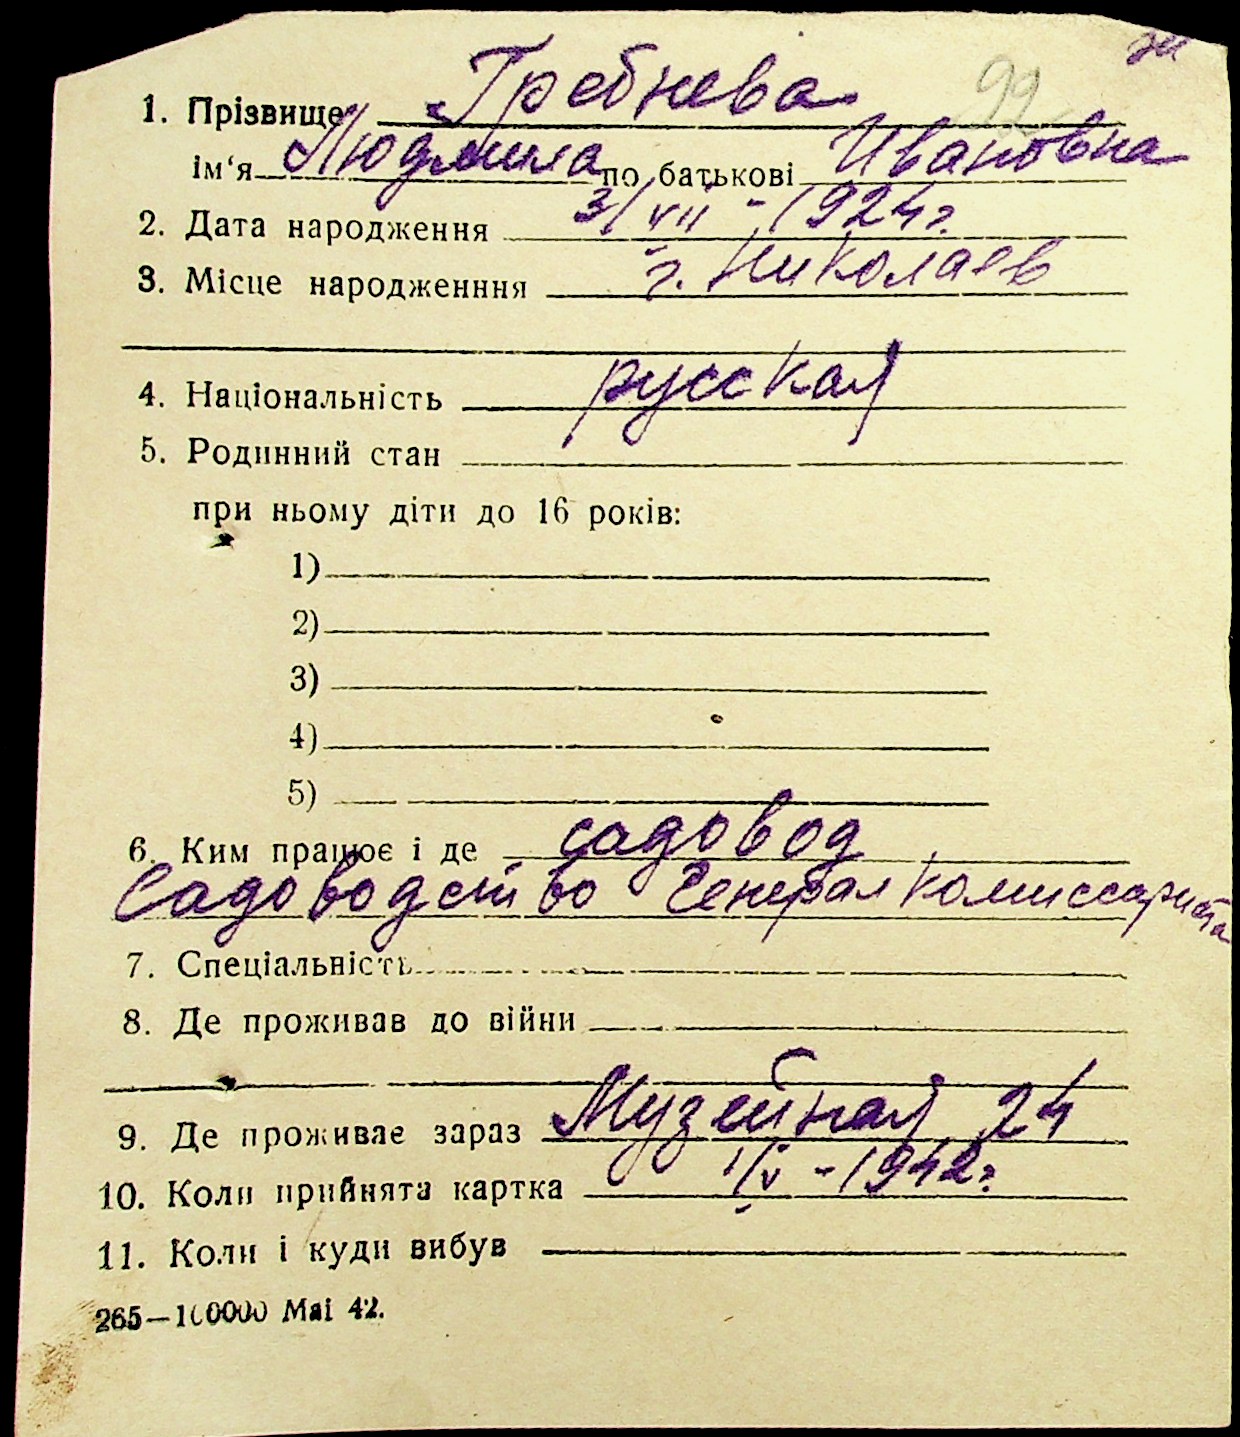 1. Прізвище Гребнева 92
ім‘я Людмила по батькові Ивановна
2. Дата народження 3/VII - 1924 г.
3. Місце народженння г. Николаев
4. Національність русская
5. Родинний стан
при ньому діти до 16 років:
1)
2)
3)
4)
5)
6. Ким працює і де садовод
Садоводство Генерал Комиссариата
7. Спеціальність
8. Де проживав до війни
9. Де проживає зараз Музейная 24
10. Коли прийнята картка 1/V - 1942 г.
11. Коли і куди вибув
265—100000 Маі 42.